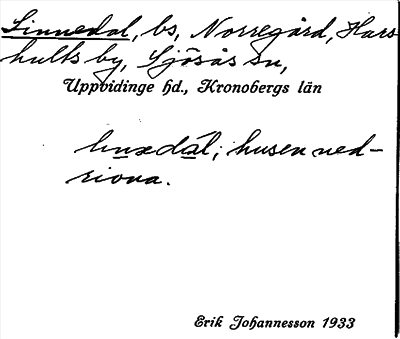 Linnedal, bs, Norregård, Hars
hults by, Sjösås sn,
Uppvidinge hd., Kronobergs län
husen ned-
rivna.
Erik Johannesson 1933